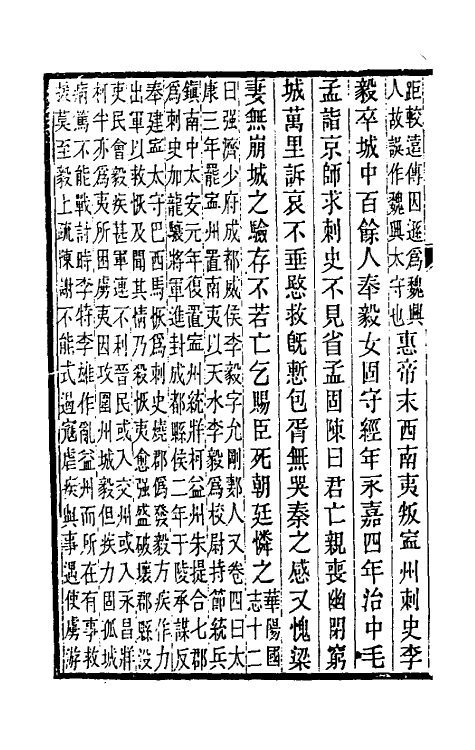 距較遠傳因遜爲魏興
人故誤作魏興太守也
惠帝末西南夷叛寍州刺史李
毅卒城中百餘人奉毅女固守經年永嘉四年治中毛
孟詣京師求刺史不見省孟固陳曰君亡親喪幽閉窮
城萬里訴哀不垂愍救旣慙包胥無哭秦之感又愧梁
妻無崩城之驗存不若亡乞賜臣死朝廷憐之
華陽國
志十二
曰强濟少府成都威侯李毅字允剛鄭人又卷四曰太
康三年罷寍州置南夷以天水李毅爲校尉持節統兵
鎮南中太安元年復置寍州統牂柯益州朱提合七郡
爲刺史加龍驤將軍進封成都縣侯二年于陵承謀反
奉建寍太守巴西馬恢爲刺史燒郡僞發毅方疾作力
出軍以救恢及聞其情乃殺恢夷愈强盛破壞郡縣没
吏民會毅疾甚軍連不利晉民或入交州或入永昌牂
利牛亦爲夷所困虜夷因攻圍州城毅但疾力固孤城
病篤不能戰討時李特李雄作亂益州而所在有事救
援莫至毅上疏陳謝不能式遏寇虐疾與事遇使虜游